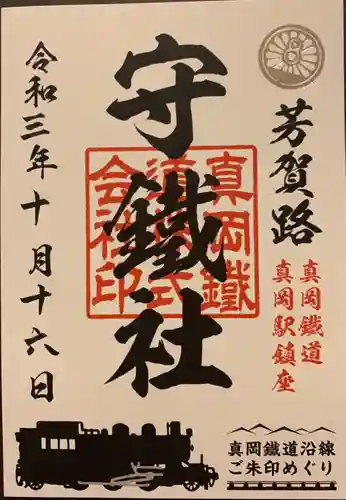 芳賀路
真岡鐵道
真岡駅鎮座
守鐵社
真岡鐵
道株式
会社印
令和三年十月十六日
真岡鐵道沿線
ご朱印めぐり